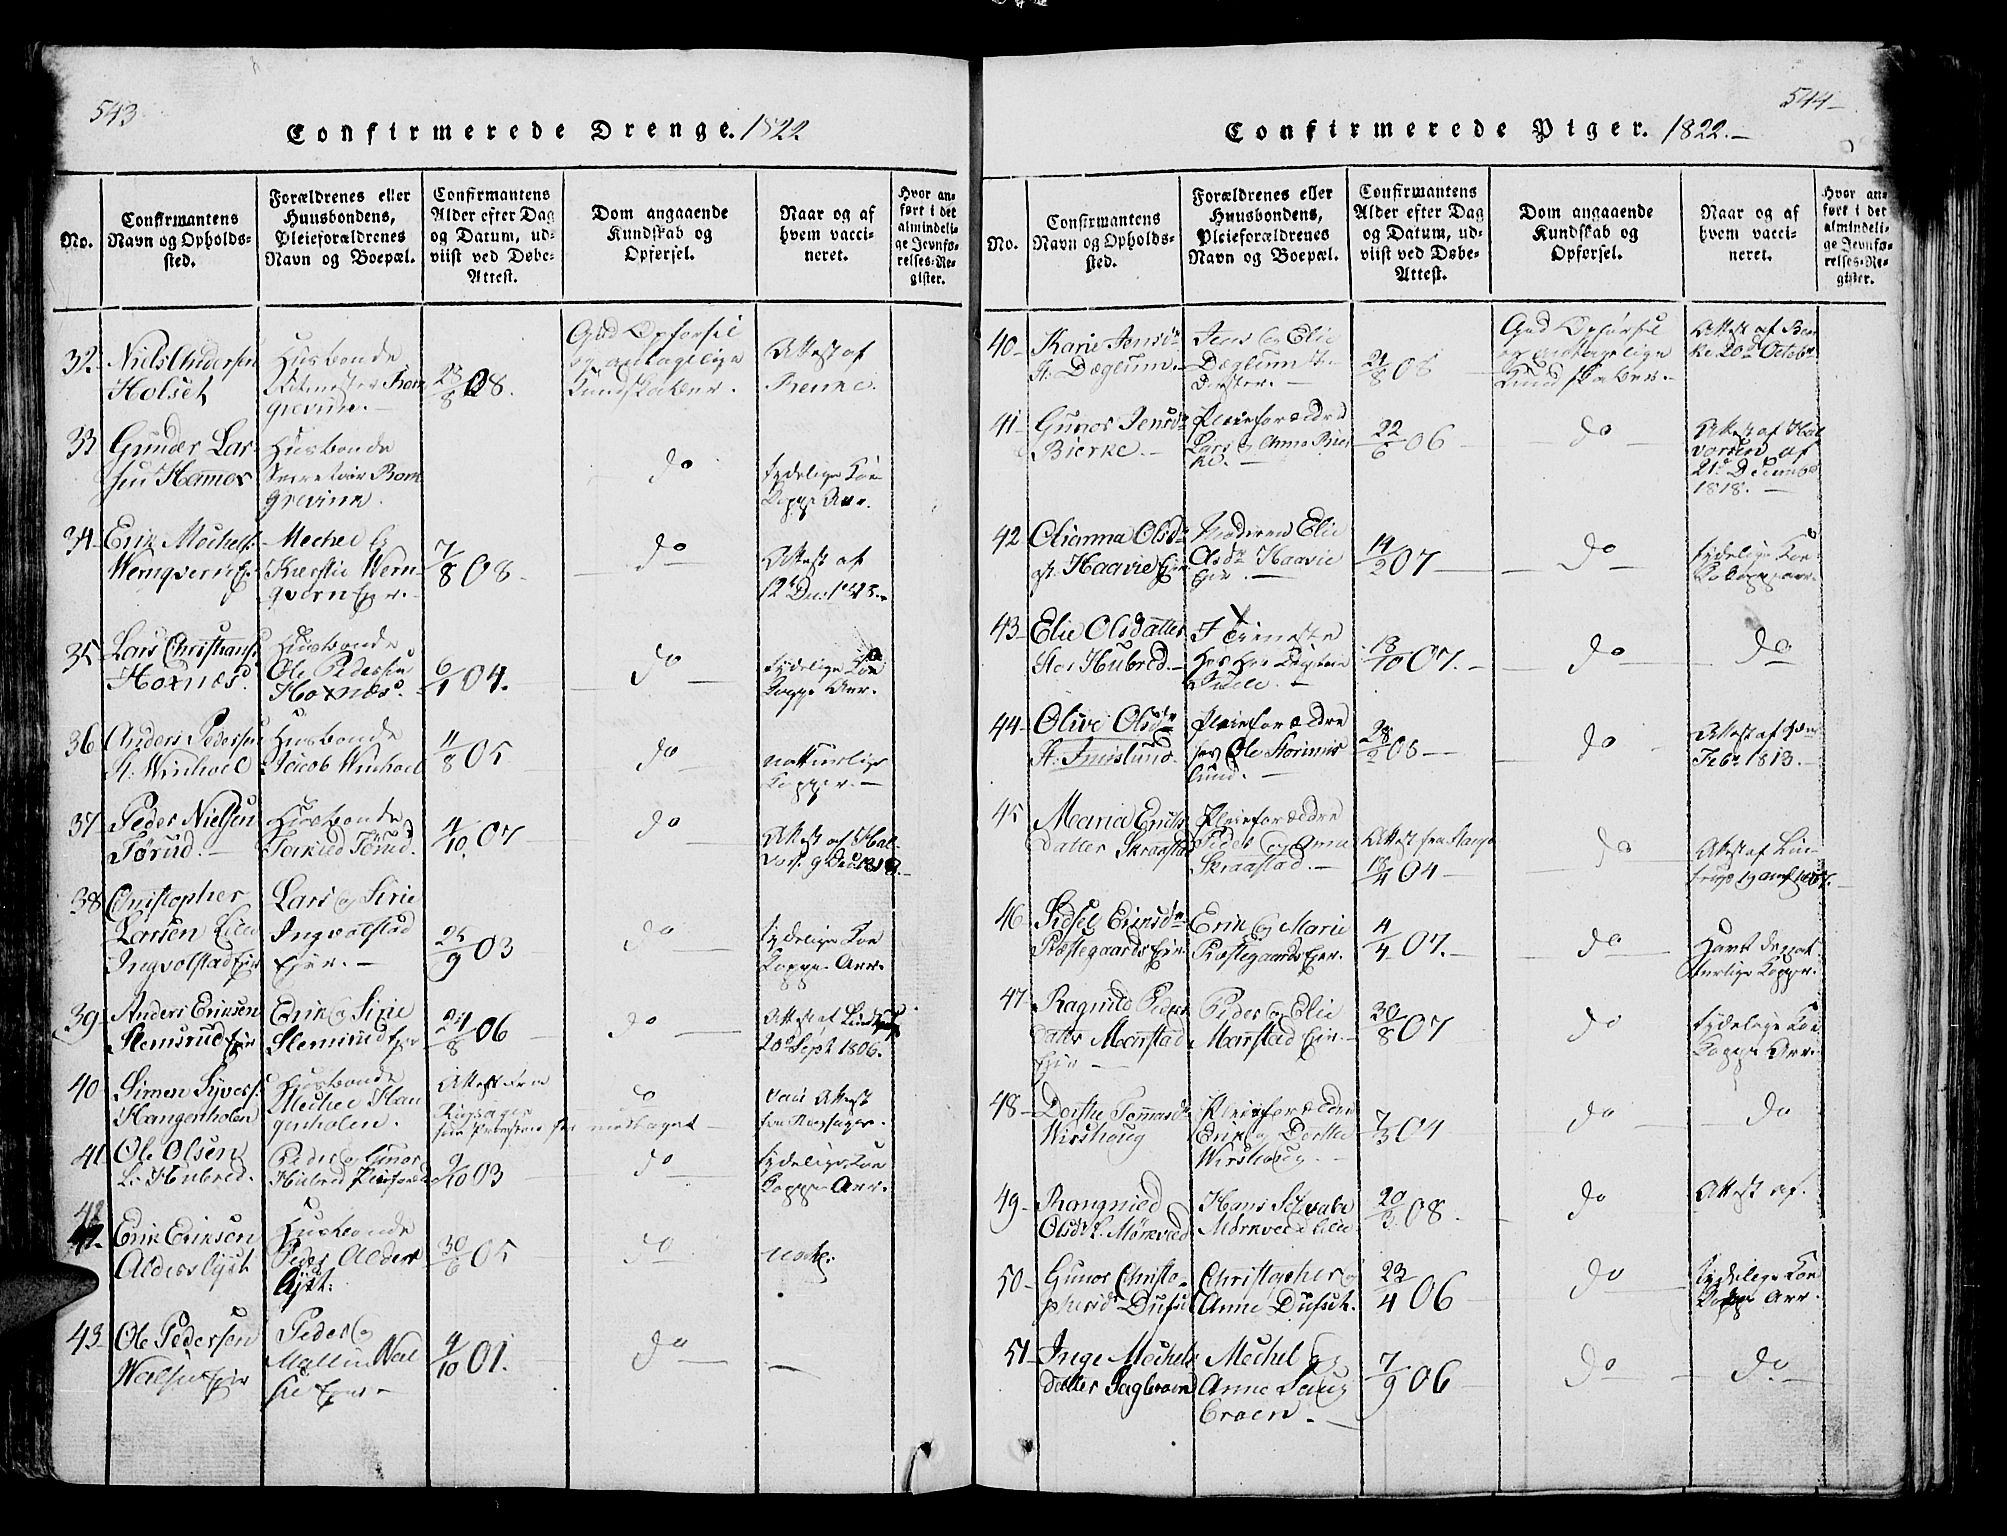 543
Confirmerede Drenge. 1822
No.
Confirmantens
Navn og Opholds-
sted.
Forældrenes eller
Huusbondens,
Pleieforældrenes
Navn og Boepæl.
Confirmantens
Alder efter Dag
og Datum, ud-
viist ved Døbe-
Attest.
Dom angaaende
Kundskab og
Opførsel.
Naar og af
hvem vacci-
neret.
Hvor an-
ført i det
almindeli-
ge Jevnfø-
relses-Re-
gister.
32. Niels Andersen
Holset
Husbonde
grevink.
23/8 08.
God Opførsel
og antagelige
Kundskaber.
Attest af
Bencke.
33 Gunder Lar-
sen Hammer
Husbonde
Secretair Born
grevink.
do
tydelige Koe
Kopp Arr.
34 Erik Mechels:
Wemqvern Eje
Mechel og
Kierstie Wem-
qvern Ejer.
7/8 08
do
Attest af
35 Lars Christians:
Hoxnæs
Husbonde
Ole Pedersen
Hoxnæs.
6/1 04.
do
tydelige Koe
Koppe Arr.
36 Anders Pedersen
St: Windhoel
Husbonde
Jacob Windhoel
11/8 05
do
naturlige
Kopper.
37 Peder Nielsen
Törud.
Husbonde
Törud.
4/10 07
do
Attest af Hal-
38 Christopher
Larsen Lille
Ingvolstad Ejer
Lars og Sirie
Ingvolstad
Ejer.
25/9 03
do
tydelige Koe
Koppe Arr.
39 Anders Eriksen
Slemsrud Ejer
Erik og Sirie
Slemsrud Ejer
24/8 06
do
20 Sept 1806.
40 Simen Syvers:
Hangenholen
Husbonde
Mechel Han
genholen.
Attest fra
Ringsager
do
Attest
fra Ringsager.
41 Ole Olsen
L: Hubred.
Peder og Gunor
Hubred Pleieforæld
9/10 03
do
tydelige Koe
Koppe Arr.
42 Erik Eriksen
Alderslyst
Husbonde
Peder Alders
lyst.
30/6 05
do
43 Ole Pedersen
Walset Ejer
Peder og
Mallene Wal
set Ejer
4/10 01.
do
544
Confirmerede Piger. 1822.
No.
Confirmantens
Navn og Opholds-
sted.
Forældrenes eller
Huusbondens,
Pleieforældrenes
Navn og Boepæl.
Confirmantens
Alder efter Dag
og Datum, ud-
viist ved Døbe-
Attest.
Dom angaaende
Kundskab og
Opførsel.
Naar og af
hvem vacci-
neret.
Hvor an-
ført i det
almindeli-
ge Jevnfø-
relses-Re-
gister.
40 Karie Jensdr
St: Dæglum.
Jens og Elie
Dæglum
24/8 08
God Opførsel
og antagelige
Kundskaber.
Attest af Ben
ke 20d Octobr
41 Gunor Jensdr
Bierke.
Pleieforældre
Lars og Anne Bier
ke.
22/6 06
do
Attest af Hal
vorsen af
21d Decembr
1818.
42 Olianna Olsdr
Haavie Ejer
Moderen Elie
Olsdr Haavie
Ejer.
14/2 07
do
tydelige Koe
43 Elie Olsdatter
Hubred.
I Tieneste
13/10 07.
do
do
44 Olive Olsdr
St: Imislund.
Pleieforældre
Ole Storimis
lund.
28/2 08
do
Febr 1813.
45 Maria Erichs
datter Skraastad
Pleieforældre
Peder og Anne
Skraastad.
Attest fra Stange
18/4 04
do
Attest af
46 Sidsel Eriksdr
Præstegaards Ejer
Erik og Marie
Præstegaards Ejer.
4/4 07.
do
Havt de nat
turlige Kopper.
47 Ragnild Peders
datter Mærstad
Ejer
Peder og Elie
Mærstad Ejer
30/8 07
do
tydelige Koe
Koppe Arr.
48 Dorthe Tommesdr
Wirshoug
Pleieforældre
Erik og Dorthe
Wirshoug.
7/3 04
do
do
49 Rangnild
Olsdr L. Mørkved
Hans
Mørkved Lille
20/3 08
do
Attest af.
50 Gunor Christo-
phersdr Dufset
Christopher og
Anne Dufset.
23/4 06
do
tydelige Koe
Koppe Arr.
51 Inge Mechels
datter Sagbraen
Mechel og
Anne Saug
braen.
7/9 06
do
do